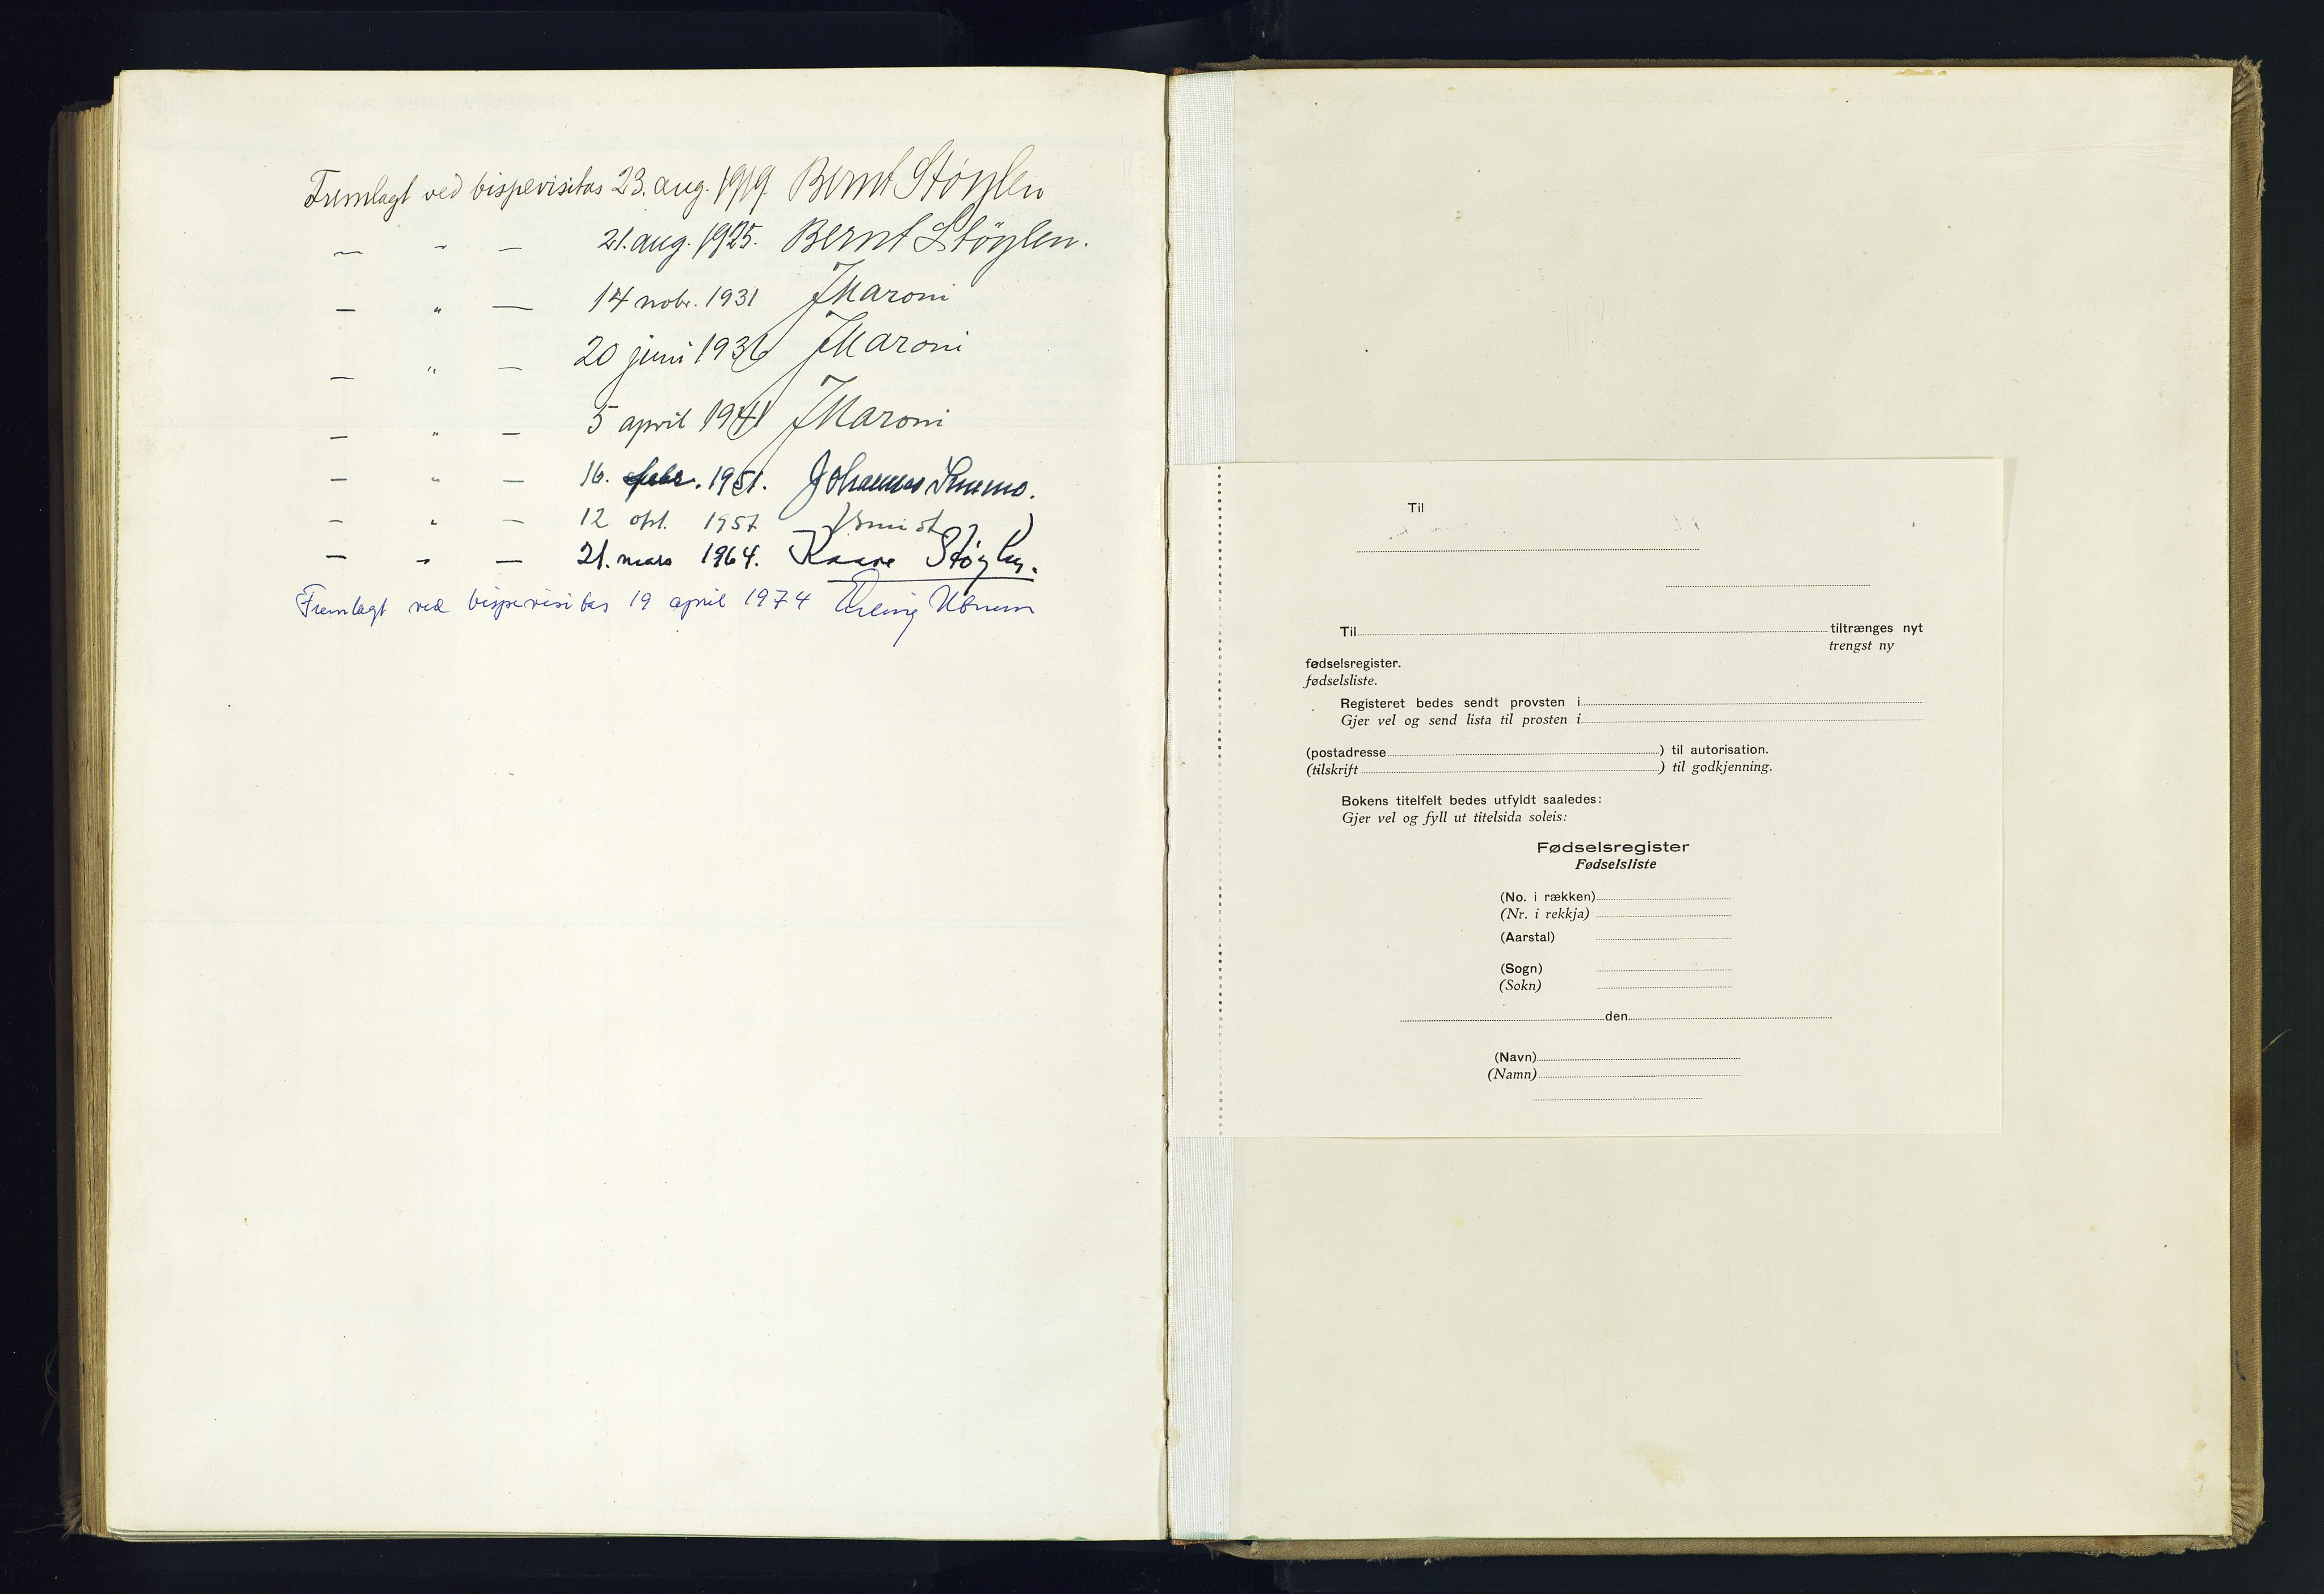 Fremlagt ved bispevisitas 23. aug. 1919. Bernt Støylen
— " — 21. aug. 1925. Bernt Støylen.
— " — 14 nobr. 1931 J Maroni
— " — 20 juni 1936 J Maroni
— " — 5 april 1941 J Maroni
— " — 16. febr. 1951. Johannes Smemo.
— " — 12 okt. 1957
— " — 21. mars 1964. Kaare Støylen.
Fremlagt ved bispevisitas 19 april 1974 Erling Utnem
Til
Til tiltrænges nyt
trengst ny
fødselsregister.
fødselsliste.
Registeret bedes sendt provsten i
Gjer vel og send lista til prosten i
(postadresse ) til autorisation.
(tilskrift ) til godkjenning.
Bokens titelfelt bedes utfyldt saaledes:
Gjer vel og fyll ut titelsida soleis:
Fødselsregister
Fødselsliste
(No. i rækken)
(Nr. i rekkja)
(Aarstal)
(Sogn)
(Sokn)
den
(Navn)
(Namn)